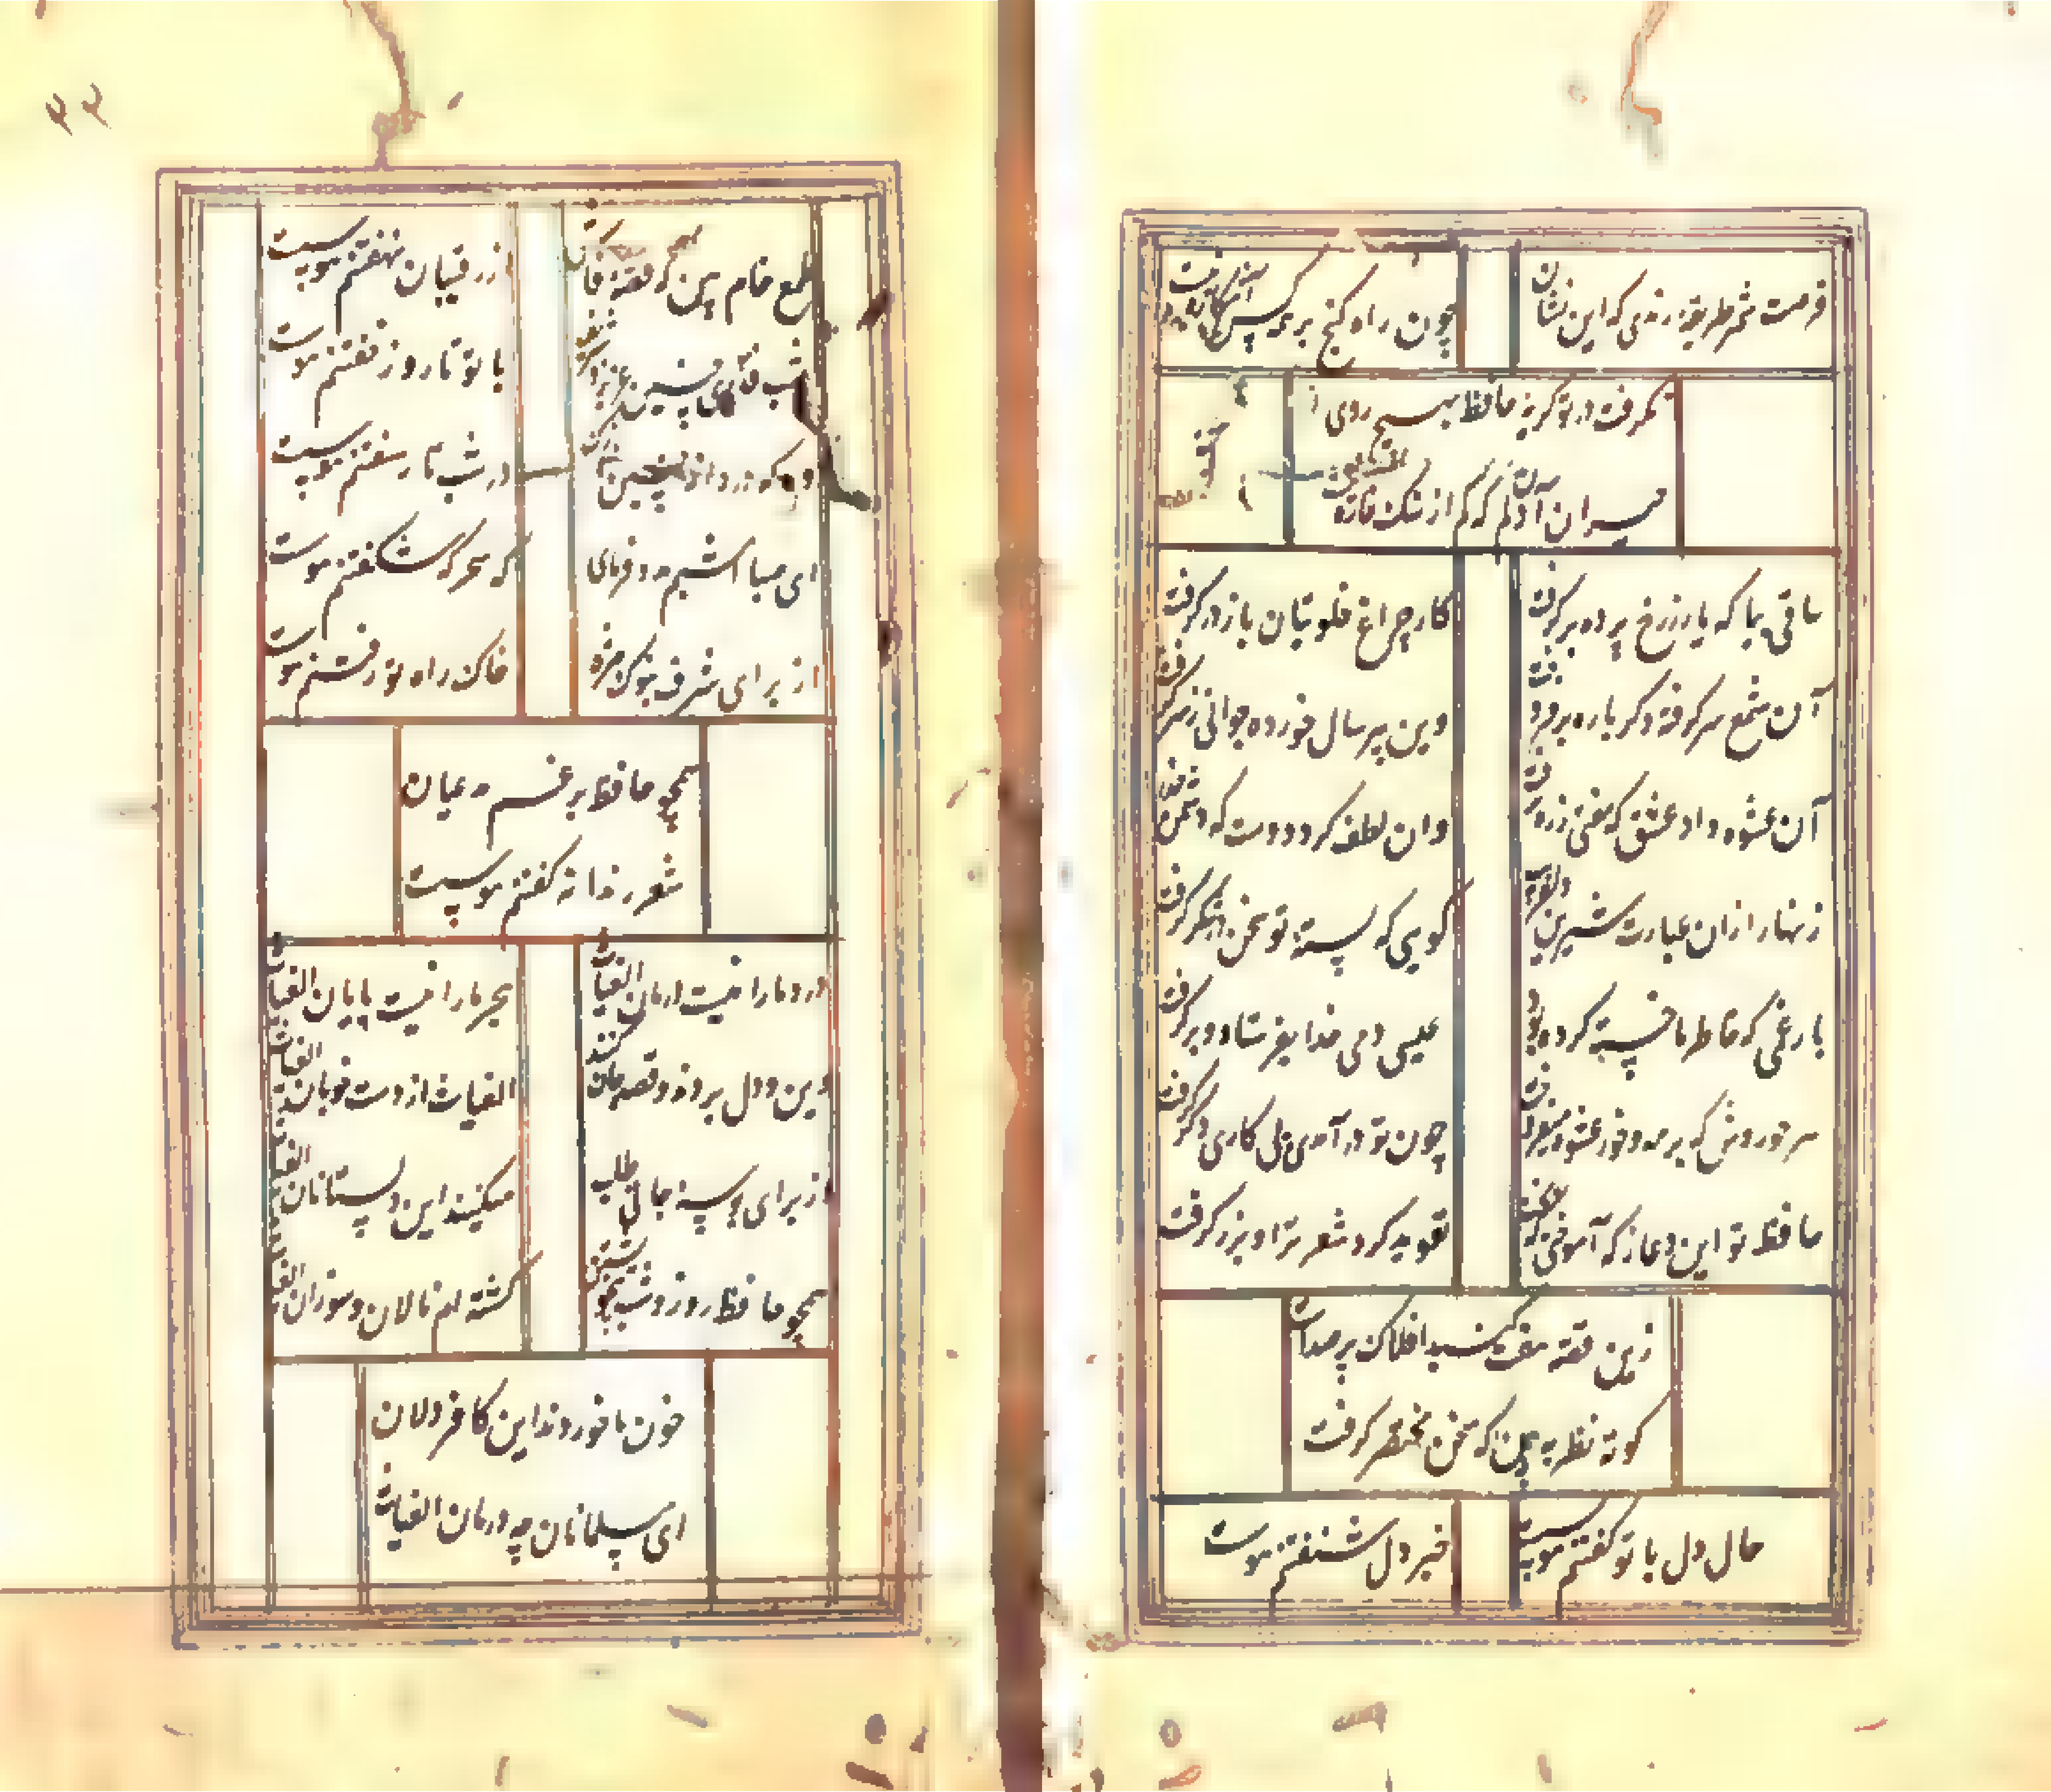 فرصت شمر طریقه رندی که این نشان
چون راه گنج بر همه کس آشکاره نیست
نگرفت در تو گریه حافظ بهیچ روی
حیران آن دلم که کم از سنک خاره نیست
ساقی بیا که یار ز رخ پرده بر گرفت
کار چراغ خلوتیان باز در گرفت
آن شمع سر گرفته دگر باره بر فروخت
وین پیر سال خورده جوانی ز سر گرفت
آن عشوه داد عشق که مفتی ز ره برفت
وان لطف کرد دوست که دشمن حذر گرفت
زنهار ازان عبارت شیرین دلفریب
گویی که پسته تو سخن در شکر گرفت
بار غمی که خاطر ما خسته کرده بود
عیسی دمی خدا بفرستاد و بر گرفت
هر حوروش که بر مه و خور عشوه میفروخت
چون تو در آمدی پی کاری دگر گرفت
حافظ تو این دعا ز که آموختی که بخت
تعویذ کرد شعر ترا و بزر گرفت
زین قصه هفت گنبد افلاک پر صداست
کوته نظر ببین که سخن مختصر گرفت
حال دل با تو گفتنم هوسست
خبر دل شنفتنم هوست
طمع خام بین که قصه فاش
از رقیبان نهفتنم هوسست
شب قدری چنین عزیز شریف
با تو تا روز خفتنم هوست
وه که دردانه چنین نازک
در شب تار سفتنم هوسست
ای صبا امشبم مدد فرمای
که سحرگه شکفتنم هوست
از برای شرف بنوک مژه
خاک راه تو رفتنم هوست
همچو حافظ برغم مدعیان
شعر رندانه گفتنم هوسست
درد ما را نیست درمان الغیاث
هجر ما را نیست پایان الغیاث
دین و دل بردند و قصد جان کنند
الغیاث از دست خوبان الغیاث
از برای بوسه جانی طلب
میکنند این دلستانان الغیاث
همچو حافظ روز و شب بی خویشتن
گشته ام نالان و سوزان الغیاث
خون ما خوردند این کافر دلان
ای مسلمانان چه درمان الغیاث